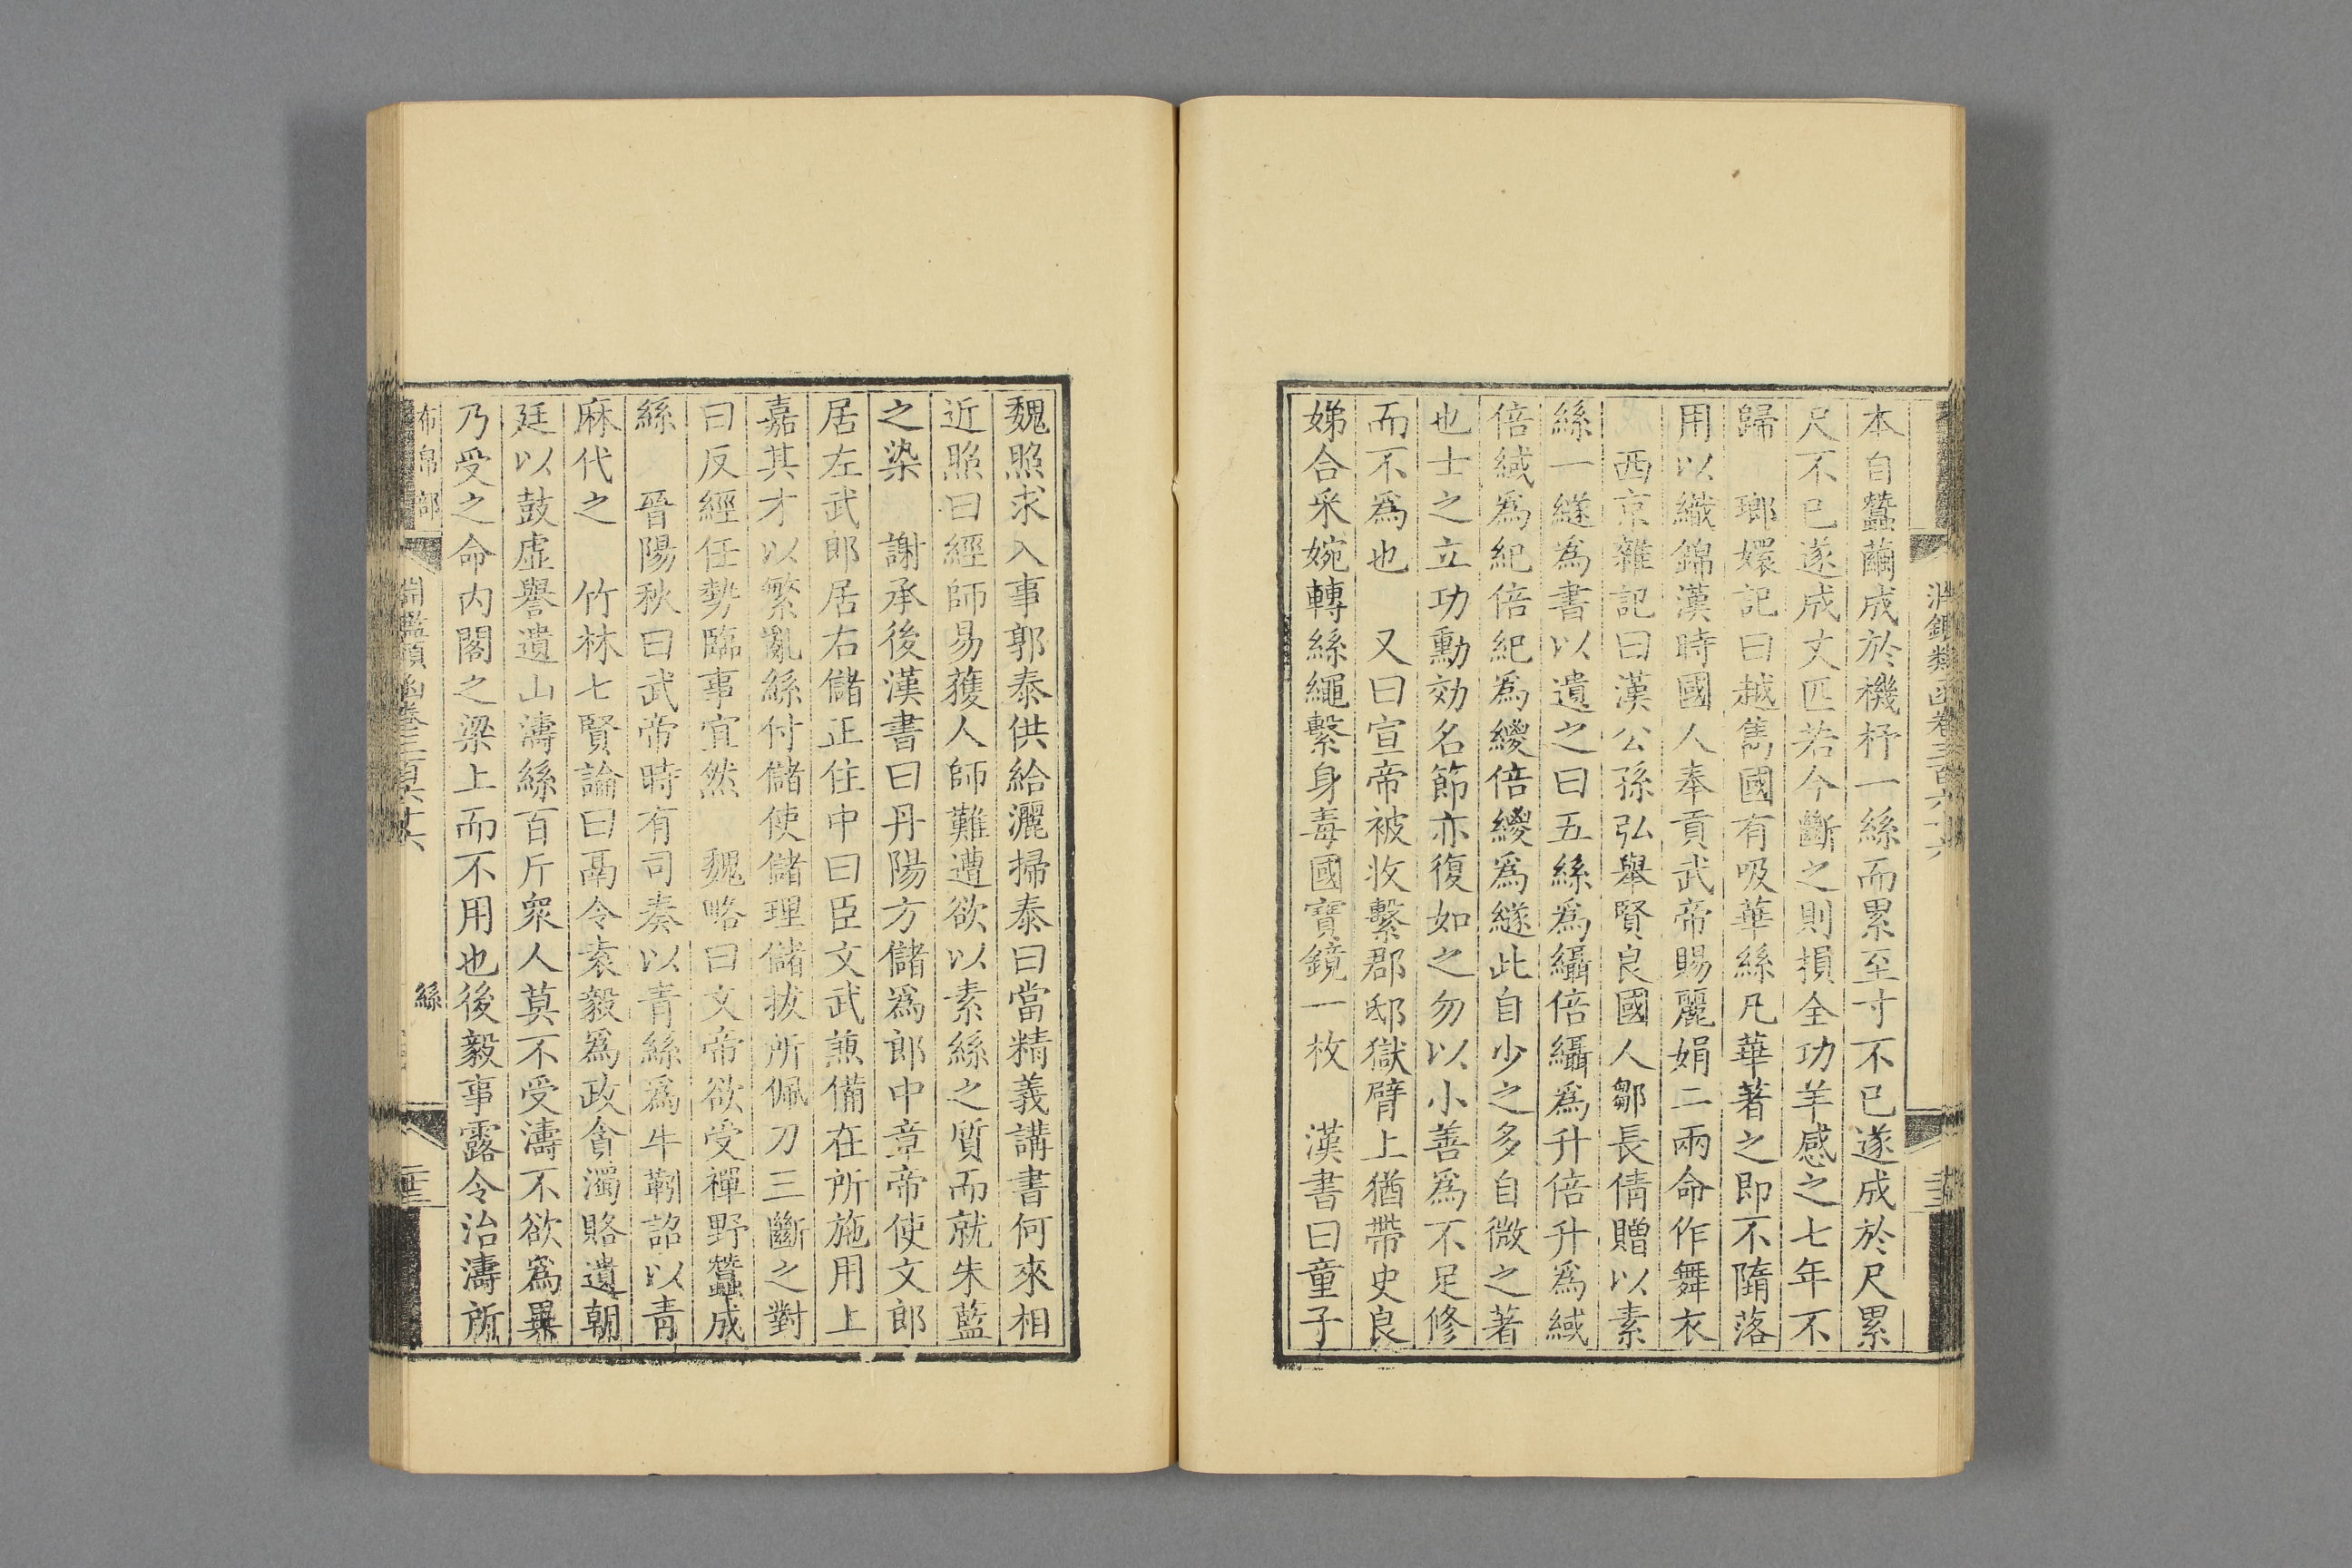 淵鑑類函卷三百六十六
本自蠶繭成於機杼一絲而累至寸不已遂成於尺累
尺不已遂成丈匹若今斷之則損全功羊感之七年不
歸 瑯嬛記曰越雋國有吸華絲凡華著之即不隋落
用以織錦漢時國人奉貢武帝賜麗娟二兩命作舞衣
西京雜記曰漢公孫弘舉賢良國人鄒長倩贈以素
絲一繸為書以遺之曰五絲為繦倍繦為升倍升為緎
倍緎為紀倍紀為緵倍緵為繸此自少之多自微之著
也士之立功勳効名節亦復如之勿以小善為不足修
而不為也 又曰宣帝被收繫郡邸獄臂上猶帶史良
娣合采婉轉絲繩繫身毒國寶鏡一枚 漢書曰童子
魏照求入事郭泰供給灑掃泰曰當精義講書何來相
近照曰經師易獲人師難遭欲以素絲之質而就朱藍
之染 謝承後漢書曰丹陽方儲為郎中章帝使文郎
居左武郎居右儲正住中曰臣文武兼備在所施用上
嘉其才以繁亂絲付儲使儲理儲拔所佩刀三斷之對
曰反經任勢臨事宜然 魏略曰文帝欲受禪野蠶成
絲 晉陽秋曰武帝時有司奏以青絲為牛靷詔以青
麻代之 竹林七賢論曰鬲令袁毅為政貪濁賂遺朝
廷以鼓虛譽遺山濤絲百斤眾人莫不受濤不欲為異
乃受之命內閣之梁上而不用也後毅事露令治濤所
布帛部 絲